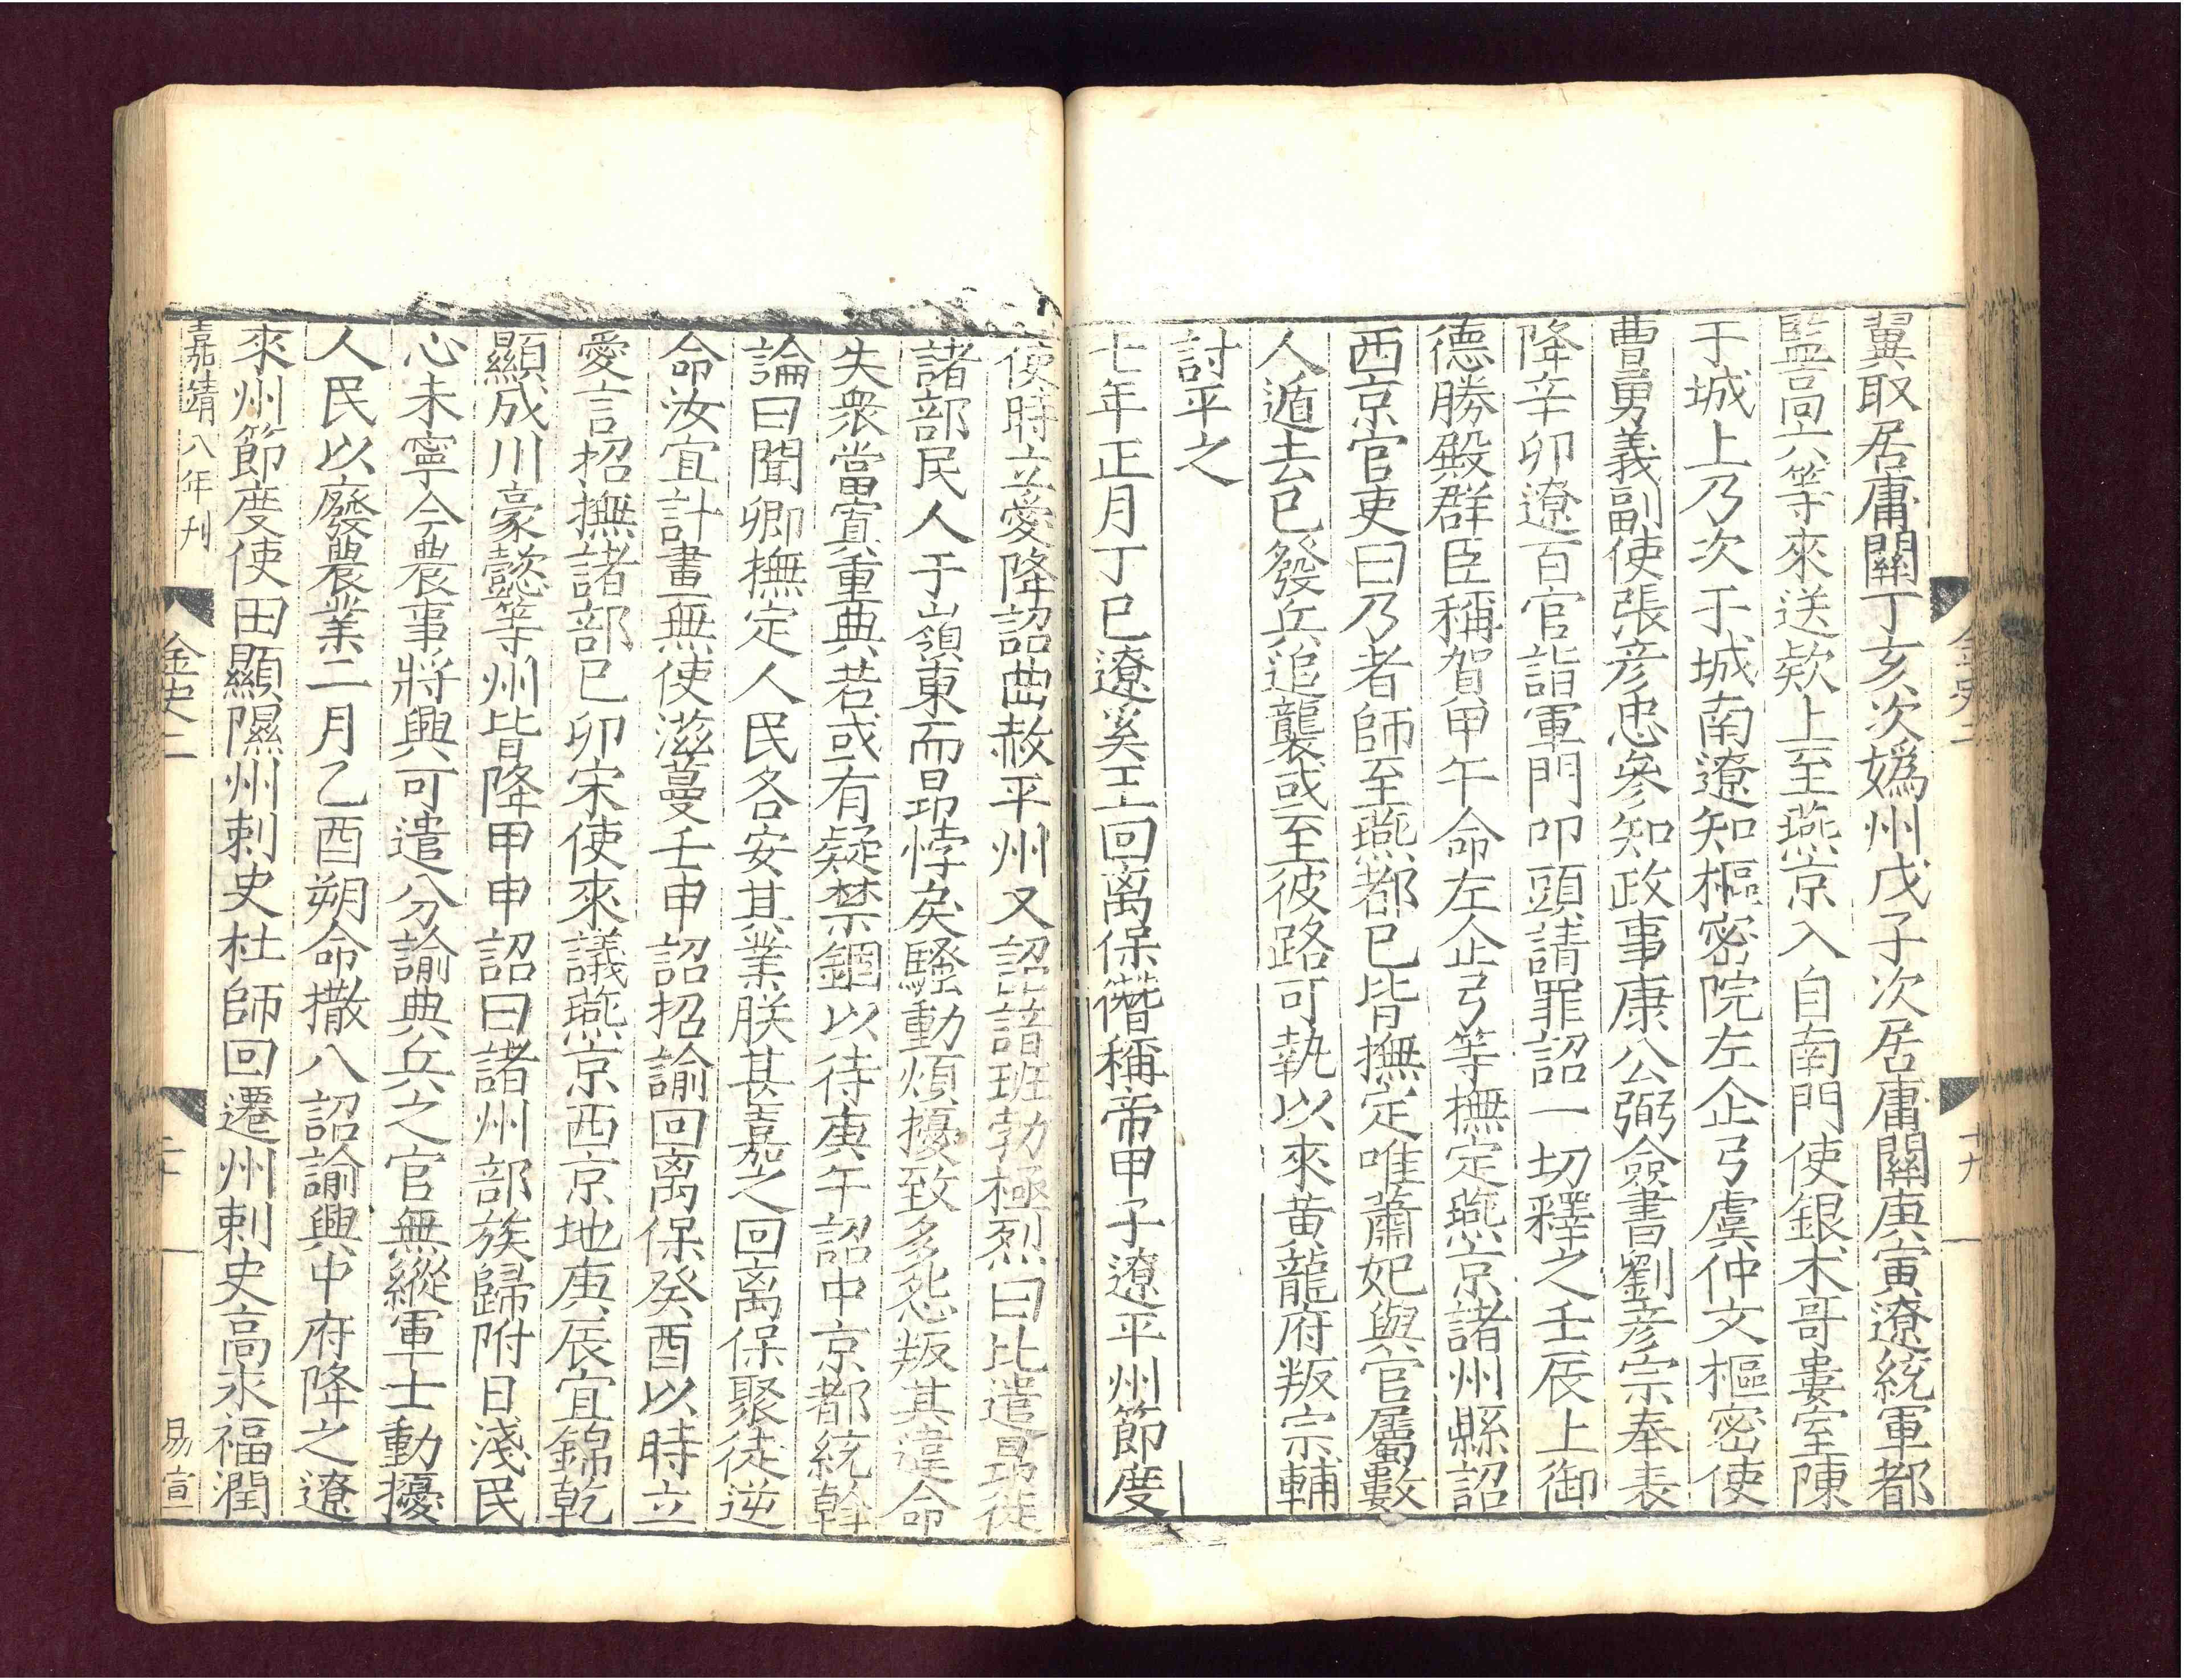 金史二
十九
翼取居庸關丁亥次媯州戊子次居庸關庚寅遼統軍都
監高六等來送款上至燕京入自南門使銀朮哥婁室陳
于城上乃次于城南遼知樞密院左企弓虞仲文樞密使
曹勇義副使張彥忠參知政事康公弼僉書劉彥宗奉表
降辛卯遼百官詣軍門叩頭請罪詔一切釋之壬辰上御
德勝殿群臣稱賀甲午命左企弓等撫定燕京諸州縣詔
西京官吏曰乃者師至燕都已皆撫定唯蕭妃與官屬數
人遁去已發兵追襲或至彼路可執以來黃龍府叛宗輔
討平之
七年正月丁巳遼奚王回离保僭稱帝甲子遼平州節度
使時立愛降詔曲赦平州又詔諳班勃極烈曰比遣昂徙
諸部民人于嶺東而昂悖戾騷動煩擾致多怨叛其違命
失衆當寘重典若或有疑禁錮以待庚午詔中京都統斡
論曰聞卿撫定人民各安其業朕甚嘉之回离保聚徒逆
命汝宜計畫無使滋蔓壬申詔招諭回离保癸酉以時立
愛言招撫諸部己卯宋使來議燕京西京地庚辰宜錦乾
顯成川豪懿等州皆降甲申詔曰諸州部族歸附日淺民
心未寧今農事將興可遣分諭典兵之官無縱軍士動擾
人民以廢農業二月乙酉朔命撒八詔諭興中府降之遼
來州節度使田顥隰州刺史杜師回遷州刺史高永福潤
嘉靖八年刊
金史二
二十
易宣